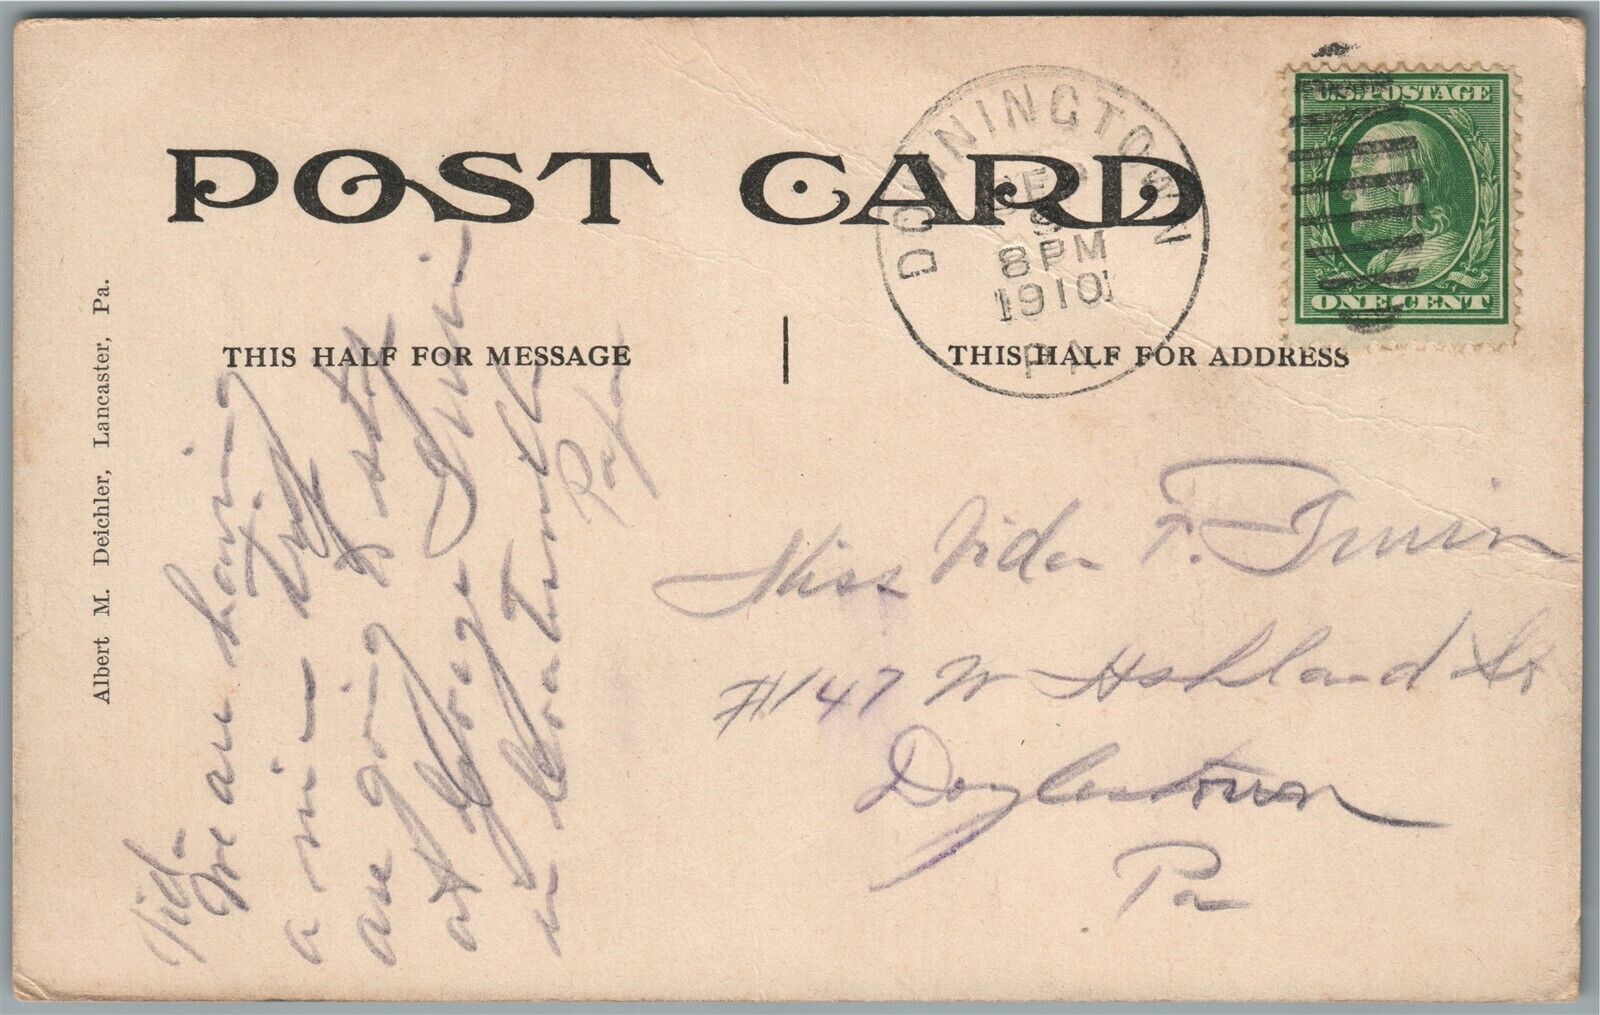 POST CARD
THIS HALF FOR MESSAGE
THIS HALF FOR ADDRESS
Albert M. Deichler, Lancaster, Pa.
DOWNINGTOWN
8 PM
1910
PA
U.S. POSTAGE
ONE CENT
We are having
a nice
are going to
at George
in
Miss Vida F. Irwin
#147 W Ashland St
Doylestown
Pa